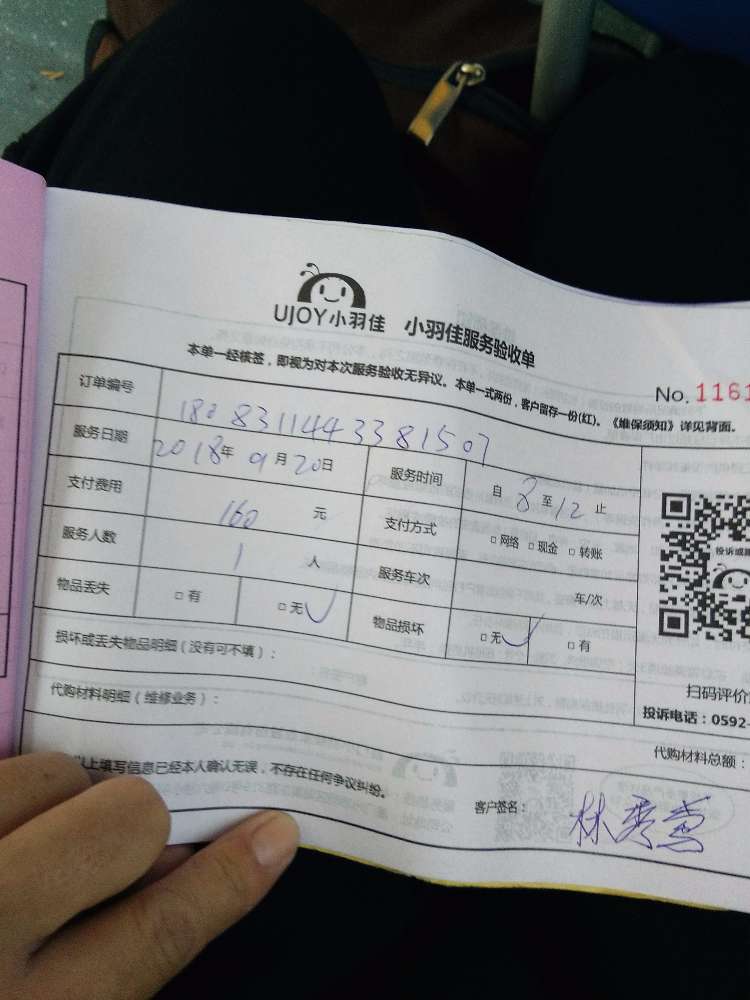 UJOY小羽佳 小羽佳服务验收单
本单一经核签，即视为对本次服务验收无异议。本单一式两份，客户留存一份(红)。《维保须知》详见背面。
No. 1161
订单编号 1808311443381507
服务日期 2018年9月20日 服务时间 自8至12止
支付费用 160元 支付方式 □网络 □现金 □转账
服务人数 1人 服务车次 车/次
物品丢失 □有 □无√ 物品损坏 □无√ □有
投诉或
损坏或丢失物品明细（没有可不填）：
扫码评价
代购材料明细（维修业务）：
投诉电话：0592-
代购材料总额：
以上填写信息已经本人确认无误，不存在任何争议纠纷。
客户签名：林秀